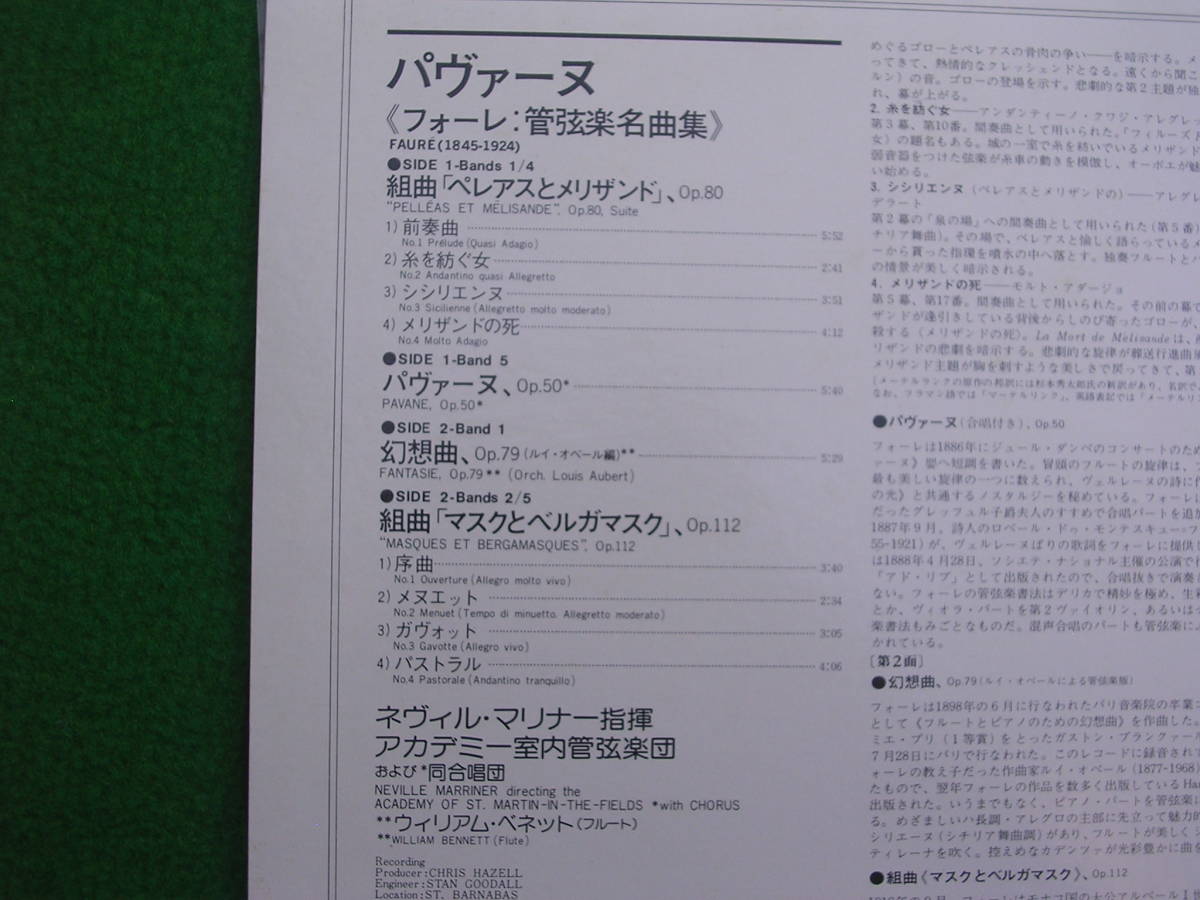 パヴァーヌ
《フォーレ:管弦楽名曲集》
FAURÉ(1845-1924)
●SIDE 1-Bands 1/4
組曲「ペレアスとメリザンド」、Op.80
"PELLÉAS ET MÉLISANDE", Op.80, Suite
1)前奏曲 5:52
No.1 Prélude(Quasi Adagio)
2)糸を紡ぐ女 2:41
No.2 Andantino quasi Allegretto
3)シシリエンヌ 3:51
No.3 Sicilienne(Allegretto molto moderato)
4)メリザンドの死 4:12
No.4 Molto Adagio
●SIDE 1-Band 5
パヴァーヌ、Op.50* 5:40
PAVANE, Op.50*
●SIDE 2-Band 1
幻想曲、Op.79(ルイ・オベール編)** 5:29
FANTASIE, Op.79** (Orch. Louis Aubert)
●SIDE 2-Bands 2/5
組曲「マスクとベルガマスク」、Op.112
"MASQUES ET BERGAMASQUES", Op.112
1)序曲 3:40
No.1 Ouverture(Allegro molto vivo)
2)メヌエット 2:34
No.2 Menuet(Tempo di minuetto. Allegretto moderato)
3)ガヴォット 3:05
No.3 Gavotte(Allegro vivo)
4)パストラル 4:06
No.4 Pastorale(Andantino tranquillo)
ネヴィル・マリナー指揮
アカデミー室内管弦楽団
および*同合唱団
NEVILLE MARRINER directing the
ACADEMY OF ST. MARTIN-IN-THE-FIELDS *with CHORUS
**ウィリアム・ベネット(フルート)
**WILLIAM BENNETT(Flute)
Recording
Producer:CHRIS HAZELL
Engineer:STAN GOODALL
Location:ST. BARNABAS
めぐるゴローとペレアスの骨肉の争い――を暗示する。メ
ってきて、熱情的なクレッシェンドとなる。遠くから聞こ
ルン)の音。ゴローの登場を示す。悲劇的な第2主題が独
れ、幕が上がる。
2. 糸を紡ぐ女――アンダンティーノ・クワジ・アレグレ
第3幕、第10番。間奏曲として用いられた。「フィルーズ
女)の題名もある。城の一室で糸を紡いでいるメリザンド
弱音器をつけた弦楽が糸車の動きを模倣し、オーボエが魅
い始める。
3. シシリエンヌ(ペレアスとメリザンドの)――アレグレ
デラート
第2幕の「泉の場」への間奏曲として用いられた(第5番)
チリア舞曲)。その場で、ペレアスと愉しく語らっているメ
ーから貰った指環を噴水の中へ落とす。独奏フルートとハ
の情景が美しく暗示される。
4. メリザンドの死――モルト・アダージョ
第5幕、第17番。間奏曲として用いられた。その前の幕で
ザンドが逢引きしている背後からしのび寄ったゴローが、
殺する(メリザンドの死)。La Mort de Mélisandeは、
リザンドの悲劇を暗示する。悲劇的な旋律が葬送行進曲
メリザンド主題が胸を刺すような美しさで戻ってきて、第
(メーテルランクの原作の邦訳には杉本秀太郎氏の新訳があり、名訳で
なお、フラマン語では「マーテルリンク」、英語表記では「メーテルリン
●パヴァーヌ(合唱付き)、Op.50
フォーレは1886年にジュール・ダンベのコンサートのため
ァーヌ》嬰ヘ短調を書いた。冒頭のフルートの旋律は、
最も美しい旋律の一つに数えられ、ヴェルレーヌの詩に作
の光》と共通するノスタルジーを秘めている。フォーレ
だったグレッフュル子爵夫人のすすめで合唱パートを追加
1887年9月、詩人のロベール・ドゥ・モンテスキュー=フ
55-1921)が、ヴェルレーヌばりの歌詞をフォーレに提供し
は1888年4月28日、ソシエテ・ナショナル主催の公演で
「アド・リブ」として出版されたので、合唱抜きで演奏
ない。フォーレの管弦楽書法はデリカで精妙を極め、生彩
とか、ヴィオラ・パートを第2ヴァイオリン、あるいは
楽書法もみごとなものだ。混声合唱のパートも管弦楽に
かれている。
〔第2面〕
●幻想曲、Op.79(ルイ・オベールによる管弦楽版)
フォーレは1898年の6月に行なわれたパリ音楽院の卒業コ
として《フルートとピアノのための幻想曲》を作曲した。
ミエ・プリ(1等賞)をとったガストン・ブランクァール
7月28日にパリで行なわれた。このレコードに録音されて
ォーレの教え子だった作曲家ルイ・オベール(1877-1968)
たもので、翌年フォーレの作品を数多く出版しているHa
出版された。いうまでもなく、ピアノ・パートを管弦楽に
る。めざましいハ長調・アレグロの主部に先立って魅力的
シリエーヌ(シチリア舞曲調)があり、フルートが美しく
ティレーナを吹く。控えめなカデンツァが光彩豊かに曲を
●組曲《マスクとベルガマスク》、Op.112